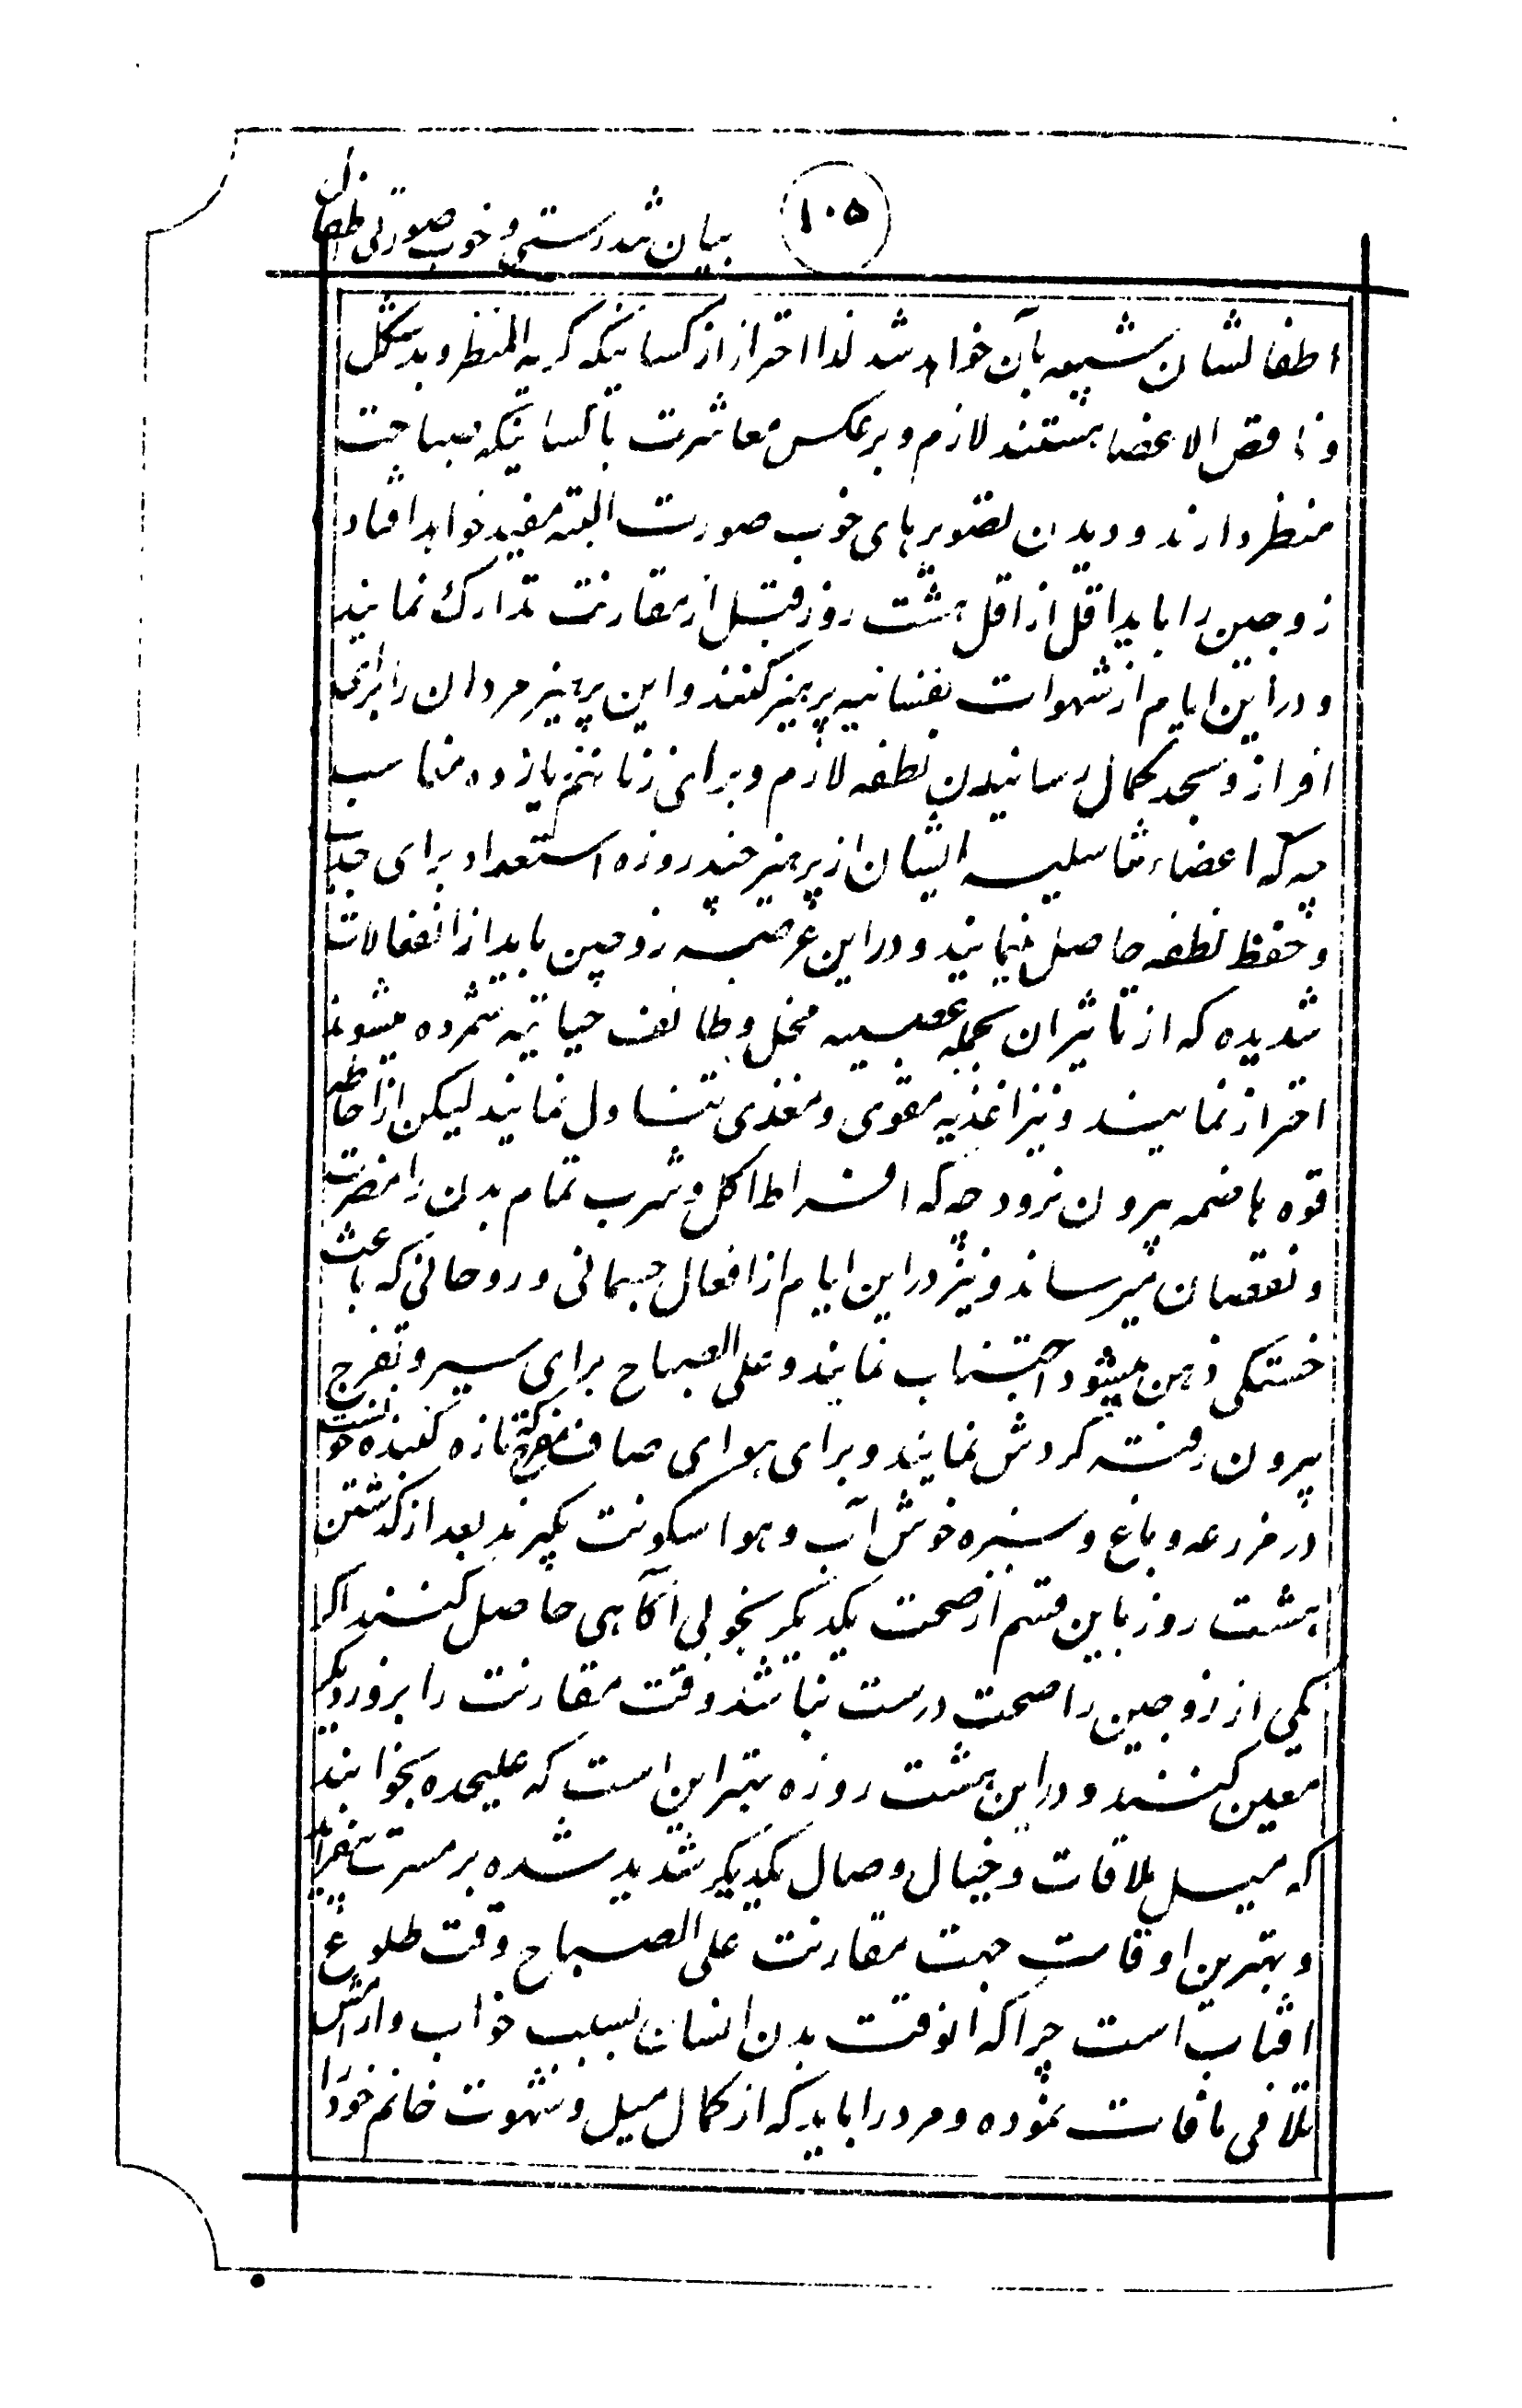 ۱۰۵
بیان تندرستی و خوب صورتی اطفال
اطفالشان شبیه بآن خواهد شد لذا احتراز از کسانیکه کریه المنظر و بدشکل
و ناقص الاعضا هستند لازم و برعکس معاشرت با کسانیکه صباحت
منظر دارند و دیدن تصویر های خوب صورت البته مفید خواهد افتاد
زوجین را باید اقل از اقل هشت روز قبل از مقارنت تدارک نمایند
و در این ایام از شهوات نفسانیه پرهیز کنند و این پرهیز مردان را برای
افراز و بحد کمال رسانیدن نطفه لازم و برای زنان هم بازوده مناسب
چه که اعضاء تناسلیه ایشان از پرهیز چند روزه استعداد برای جذب
و حفظ نطفه حاصل مینمایند و در این عرصه زوجین باید از انفعالات
شدیده که از تاثیران بجمله عصبیه مخل وظائف حیاتیه شمرده میشوند
احتراز نمایند و نیز اغذیه مقوی و مغذی تناول نمایند لیکن از احاطه
قوه هاضمه بیرون نرود چه که افراط اکل و شرب تمام بدن را مضرت
و نقصان میرساند و نیز در این ایام از افعال جسمانی و روحانی که باعث
خستگی ذهن میشود اجتناب نمایند و علی الصباح برای سیر و تفرج
بیرون رفته کردش نمایند و برای هوای صاف مفرح که تازه کننده خونست
در مزرعه و باغ و سبزه خوش آب و هوا سکونت بگیرند بعد از گذشتن
هشت روز باین قسم از صحت یکدیگر بخوبی آگاهی حاصل کنند اگر
یکی از زوجین را صحت درست نباشد وقت مقارنت را بروز دیگر
معین کنند و در این هشت روزه بهتر این است که علیحده بخوابند
که میل ملاقات و خیال وصال یکدیگر شدید شده بر مسرت بیفزاید
و بهترین اوقات جهت مقارنت علی الصباح وقت طلوع
افتاب است چرا که انوقت بدن انسان بسبب خواب و ارامش
تلافی مافات نموده و مرد را باید که از کمال میل و شهوت خانم خود را